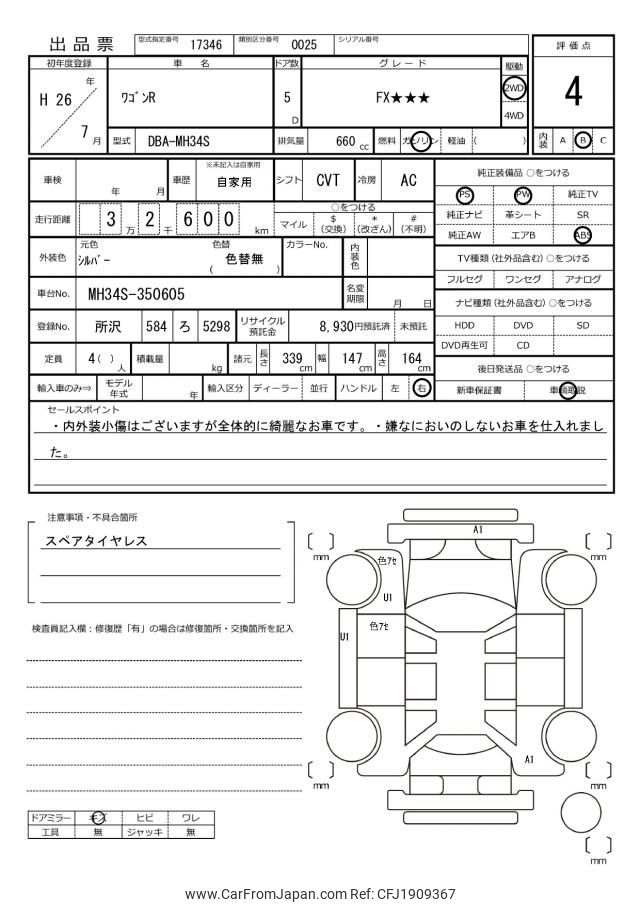 出品票
型式指定番号 17346 類別区分番号 0025 シリアル番号
評価点
初年度登録 車名 ドア数 グレード 駆動
H 26 年 7 月 ワゴンR 5 D FX★★★ 2WD 4WD
4
型式 DBA-MH34S 排気量 660 cc 燃料 ガソリン 軽油 ( )
内装 A B C
※未記入は自家用
車検 年 月 車歴 自家用 シフト CVT 冷房 AC
純正装備品 ○をつける
PS PW 純正TV
走行距離 3 万 2 千 6 0 0 km
○をつける
マイル $(交換) *(改ざん) #(不明)
純正ナビ 革シート SR
純正AW エアB ABS
外装色 元色 シルバー 色替 ( 色替無 ) カラーNo. 内装色
TV種類(社外品含む)○をつける
フルセグ ワンセグ アナログ
車台No. MH34S-350605 名変期限 月 日
ナビ種類(社外品含む)○をつける
登録No. 所沢 584 ろ 5298 リサイクル預託金 8,930円預託済 未預託
HDD DVD SD
DVD再生可 CD
定員 4( ) 人 積載量 kg 諸元 長さ 339 cm 幅 147 cm 高さ 164 cm
後日発送品 ○をつける
輸入車のみ⇒ モデル年式 年 輸入区分 ディーラー 並行 ハンドル 左 右
新車保証書 車輌取説
セールスポイント
・内外装小傷はございますが全体的に綺麗なお車です。・嫌なにおいのしないお車を仕入れまし
た。
注意事項・不具合箇所
スペアタイヤレス
検査員記入欄：修復歴「有」の場合は修復箇所・交換箇所を記入
A1
mm
mm
色アセ
U1
U1
色アセ
A1
mm
mm
mm
ドアミラー キズ ヒビ ワレ
工具 無 ジャッキ 無
www.CarFromJapan.com Ref: CFJ1909367